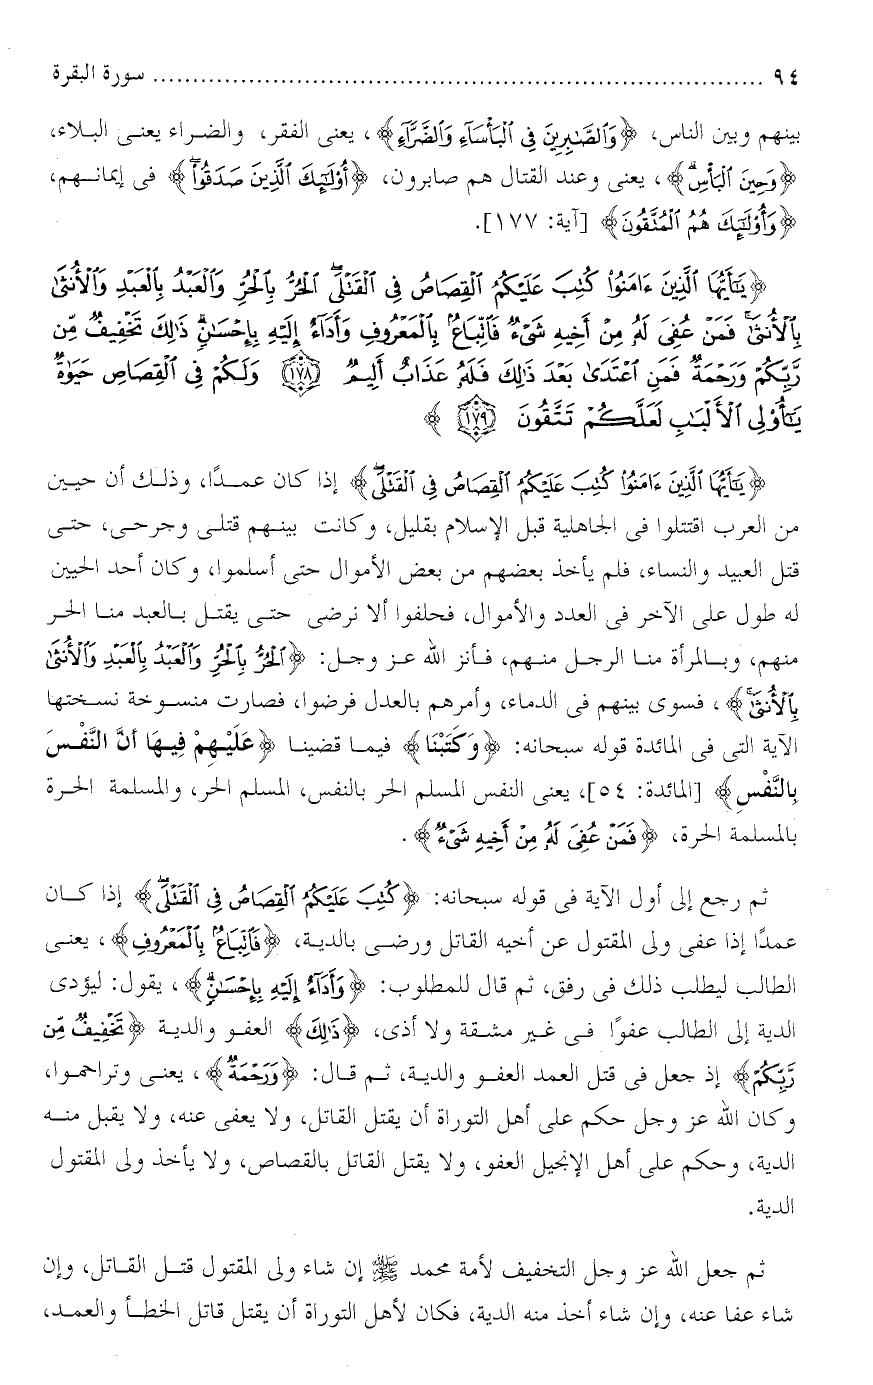 ٩٤ ............................................................ سورة البقرة
بينهم وبين الناس، ﴿وَالصَّابِرِينَ فِي الْبَأْسَاءِ وَالضَّرَّاءِ﴾، يعنى الفقر، والضراء يعنى البلاء،
﴿وَحِينَ الْبَأْسِ﴾، يعنى وعند القتال هم صابرون، ﴿أُوْلَٰٓئِكَ الَّذِينَ صَدَقُوا﴾ فى إيمانهم،
﴿وَأُوْلَٰٓئِكَ هُمُ الْمُتَّقُونَ﴾ [آية: ١٧٧].
﴿يَٰٓأَيُّهَا الَّذِينَ ءَامَنُوا كُتِبَ عَلَيْكُمُ الْقِصَاصُ فِي الْقَتْلَى الْحُرُّ بِالْحُرِّ وَالْعَبْدُ بِالْعَبْدِ وَالْأُنثَىٰ
بِالْأُنثَىٰ فَمَنْ عُفِيَ لَهُ مِنْ أَخِيهِ شَيْءٌ فَاتِّبَاعٌ بِالْمَعْرُوفِ وَأَدَآءٌ إِلَيْهِ بِإِحْسَٰنٍ ذَٰلِكَ تَخْفِيفٌ مِّن
رَّبِّكُمْ وَرَحْمَةٌ فَمَنِ اعْتَدَىٰ بَعْدَ ذَٰلِكَ فَلَهُ عَذَابٌ أَلِيمٌ ١٧٨ وَلَكُمْ فِي الْقِصَاصِ حَيَوٰةٌ
يَٰٓأُوْلِي الْأَلْبَٰبِ لَعَلَّكُمْ تَتَّقُونَ ١٧٩ ﴾
﴿يَٰٓأَيُّهَا الَّذِينَ ءَامَنُوا كُتِبَ عَلَيْكُمُ الْقِصَاصُ فِي الْقَتْلَى﴾ إذا كان عمدًا، وذلك أن حيين
من العرب اقتتلوا فى الجاهلية قبل الإسلام بقليل، وكانت بينهم قتلى وجرحى، حتى
قتل العبيد والنساء، فلم يأخذ بعضهم من بعض الأموال حتى أسلموا، وكان أحد الحيين
له طول على الآخر فى العدد والأموال، فحلفوا ألا نرضى حتى يقتل بالعبد منا الحر
منهم، وبالمرأة منا الرجل منهم، فأنز الله عز وجل: ﴿الْحُرُّ بِالْحُرِّ وَالْعَبْدُ بِالْعَبْدِ وَالْأُنثَىٰ
بِالْأُنثَىٰ﴾، فسوى بينهم فى الدماء، وأمرهم بالعدل فرضوا، فصارت منسوخة نسختها
الآية التى فى المائدة قوله سبحانه: ﴿وَكَتَبْنَا﴾ فيما قضينا ﴿عَلَيْهِمْ فِيهَا أَنَّ النَّفْسَ
بِالنَّفْسِ﴾ [المائدة: ٥٤]، يعنى النفس المسلم الحر بالنفس، المسلم الحر، والمسلمة الحرة
بالمسلمة الحرة، ﴿فَمَنْ عُفِيَ لَهُ مِنْ أَخِيهِ شَيْءٌ﴾.
ثم رجع إلى أول الآية فى قوله سبحانه: ﴿كُتِبَ عَلَيْكُمُ الْقِصَاصُ فِي الْقَتْلَى﴾ إذا كان
عمدًا إذا عفى ولى المقتول عن أخيه القاتل ورضى بالدية، ﴿فَاتِّبَاعٌ بِالْمَعْرُوفِ﴾، يعنى
الطالب ليطلب ذلك فى رفق، ثم قال للمطلوب: ﴿وَأَدَآءٌ إِلَيْهِ بِإِحْسَٰنٍ﴾، يقول: ليؤدى
الدية إلى الطالب عفوًا فى غير مشقة ولا أذى، ﴿ذَٰلِكَ﴾ العفو والدية ﴿تَخْفِيفٌ مِّن
رَّبِّكُمْ﴾ إذ جعل فى قتل العمد العفو والدية، ثم قال: ﴿وَرَحْمَةٌ﴾، يعنى وتراحموا،
وكان الله عز وجل حكم على أهل التوراة أن يقتل القاتل، ولا يعفى عنه، ولا يقبل منه
الدية، وحكم على أهل الإنجيل العفو، ولا يقتل القاتل بالقصاص، ولا يأخذ ولى المقتول
الدية.
ثم جعل الله عز وجل التخفيف لأمة محمد ﷺ إن شاء ولى المقتول قتل القاتل، وإن
شاء عفا عنه، وإن شاء أخذ منه الدية، فكان لأهل التوراة أن يقتل قاتل الخطأ والعمد،